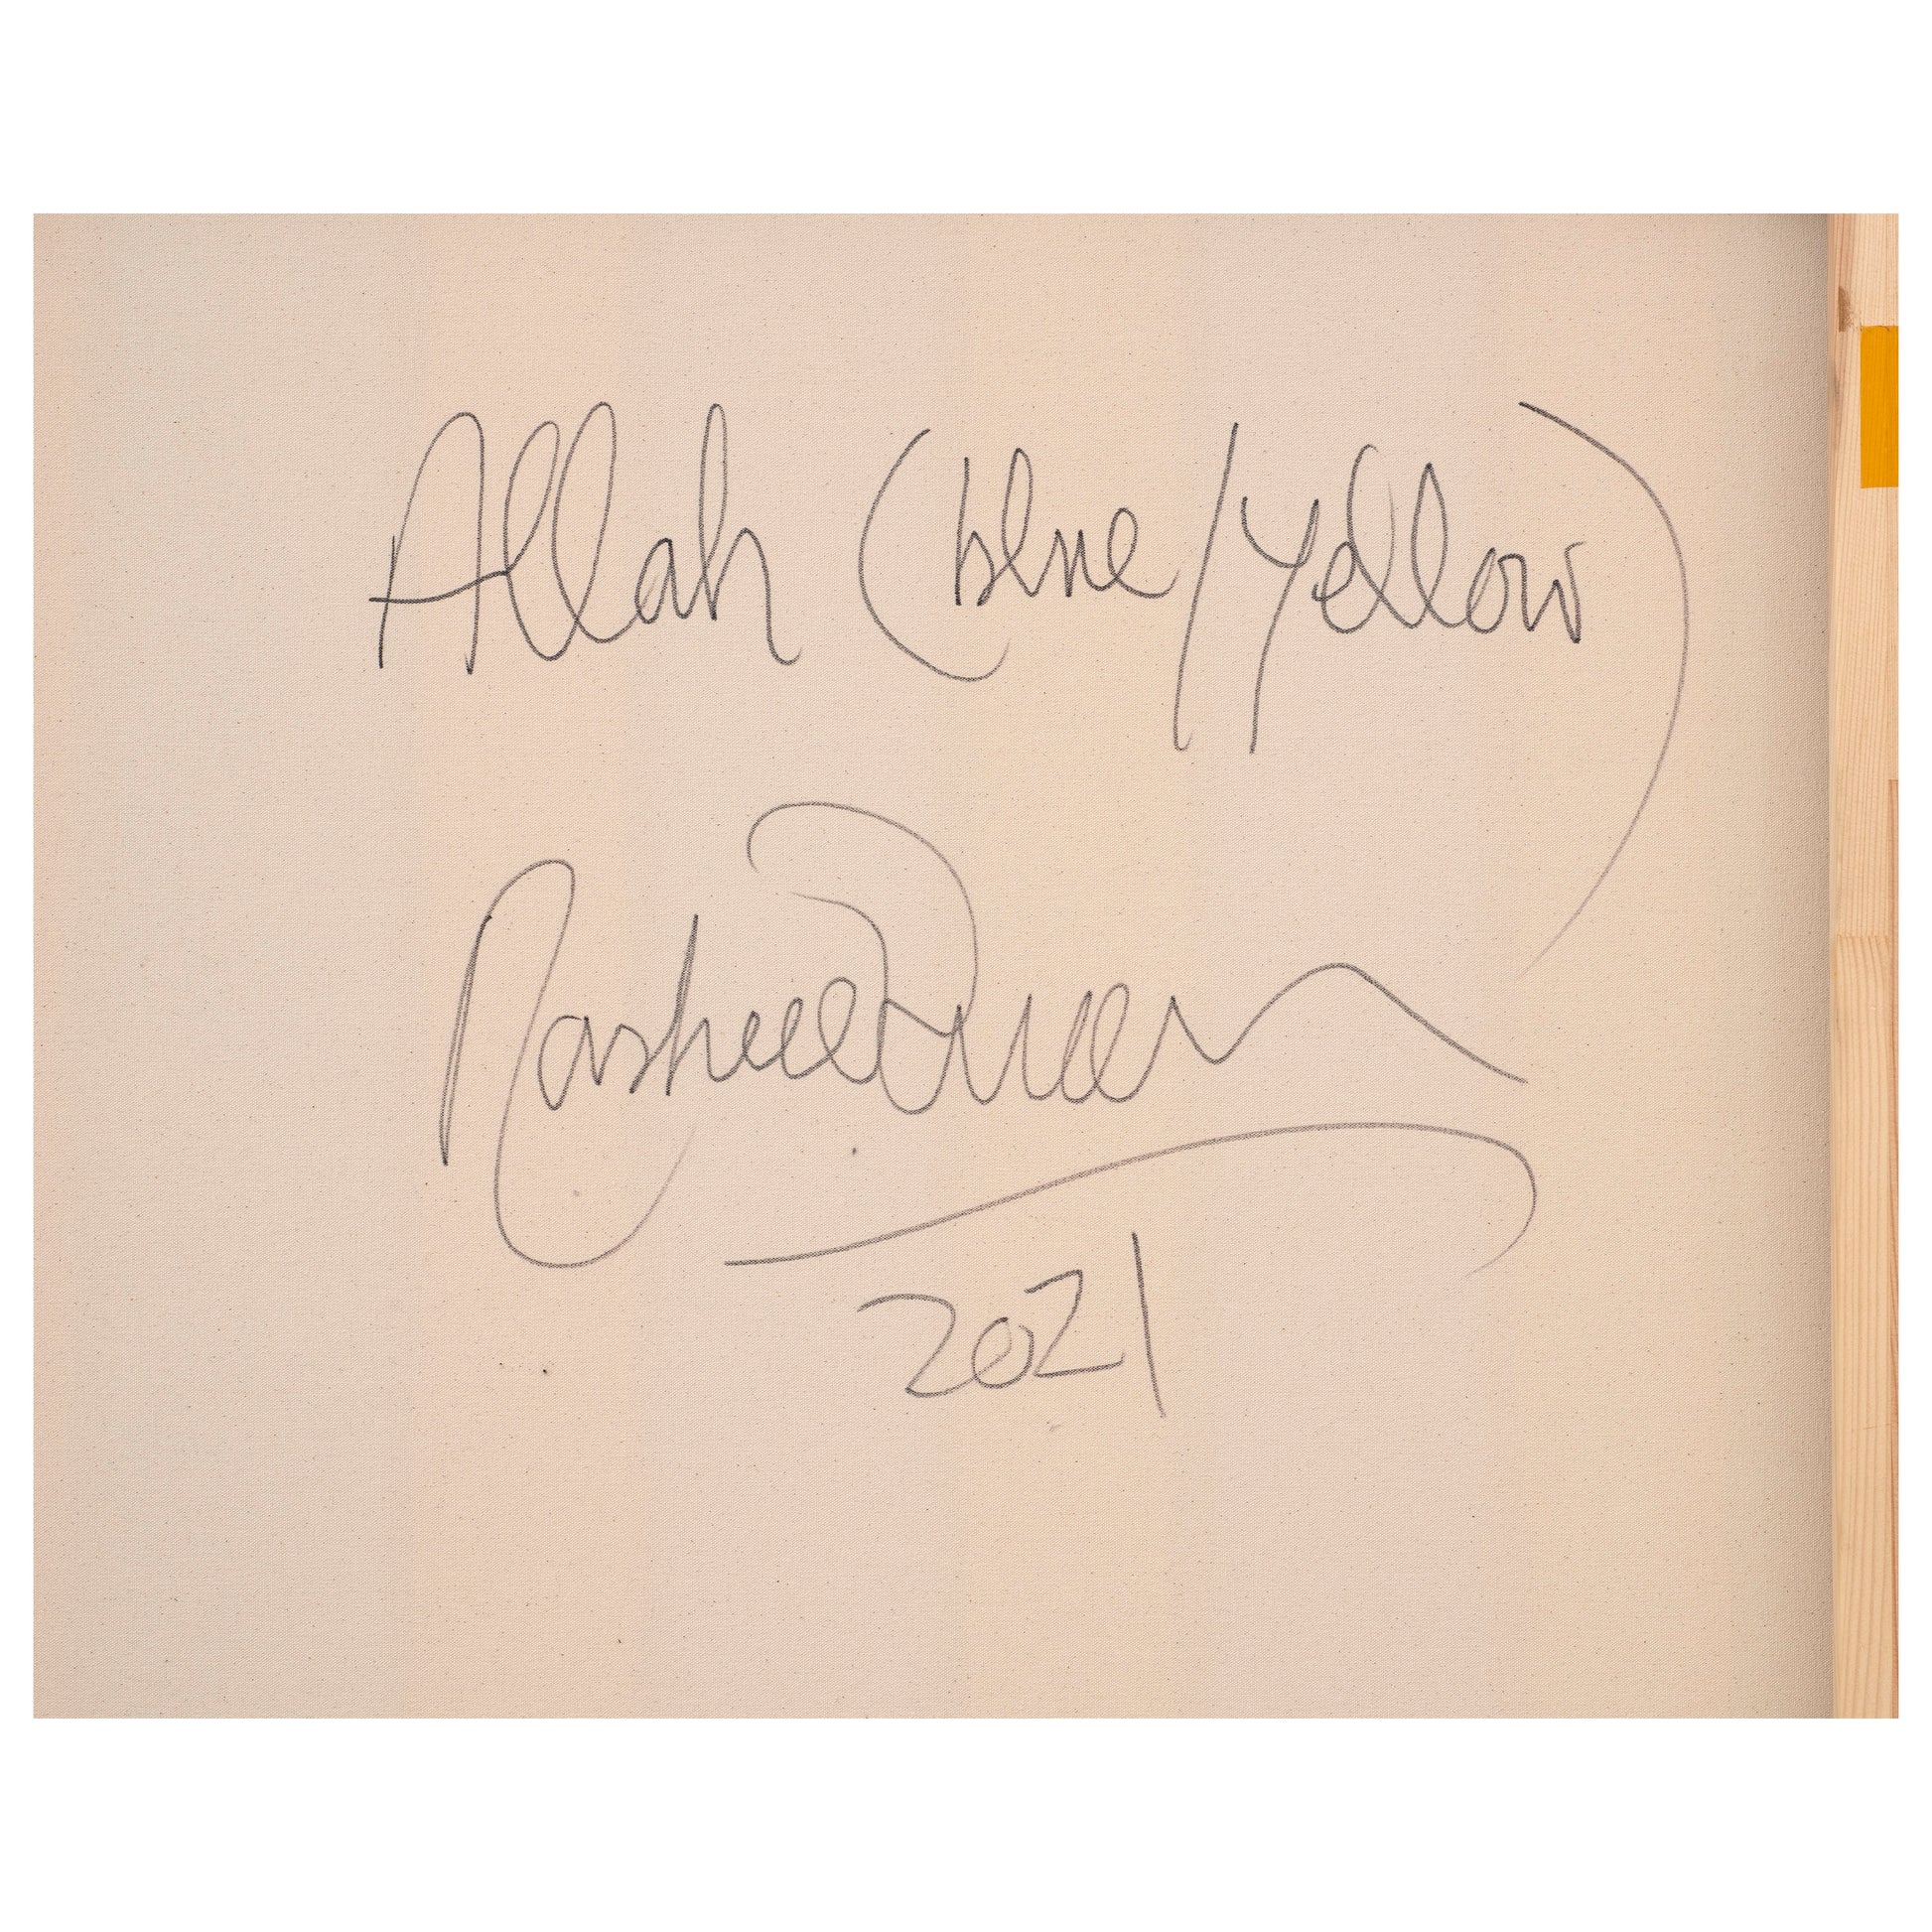 Allah (blue/Yellow)
Rasheed
2021